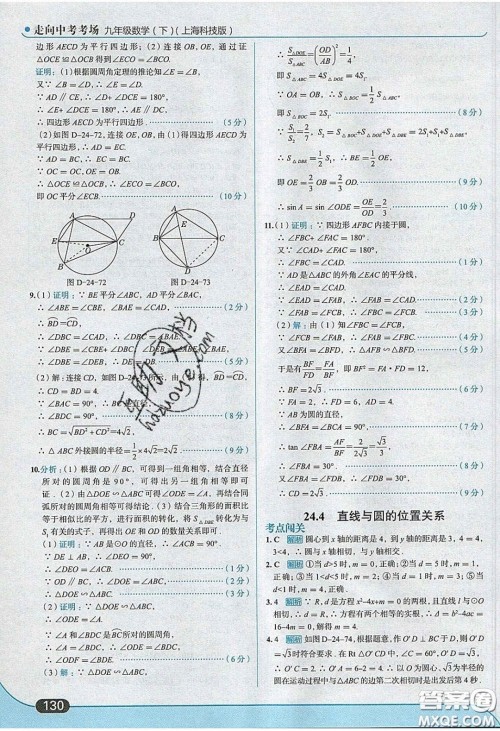 走向中考考场 九年级数学(下)(上海科技版)
边形AECD为平行四边形;(2)连接OE,OB,通过证
△OCE≌△OCB,可得结论.
证明:(1)根据圆周角定理的推论知∠E=∠B.
∵∠B=∠D,∴∠E=∠D.
∵AD∥CE,∴∠D+∠DCE=180°,
∴∠E+∠DCE=180°,∴AE∥DC,
∴四边形AECD为平行四边形. (5分)
(2)如图D-24-72,连接OE,OB,由(1)得四边形AECD为
平行四边形,∴AD=EC.
∵AD=BC,∴EC=BC.
∵OC=OC,OE=OB,
∴△OCE≌△OCB,∴∠ECO=∠BCO,
即OC平分∠BCE. (10分)
图D-24-72 图D-24-73
9.(1)证明:∵BE平分∠ABC,AD平分∠BAC,
∴∠ABE=∠CBE,∠BAE=∠CAD, (2分)
∴BD=CD,
∴∠DBC=∠CAD,∴∠DBC=∠BAE.
∵∠DBE=∠CBE+∠DBC,∠DEB=∠ABE+∠BAE,
∴∠DBE=∠DEB,∴DE=DB. (5分)
(2)解:连接CD,如图D-24-73.由(1)得BD=CD,
∴CD=BD=4.
∵∠BAC=90°,∴BC是直径,
∴∠BDC=90°, (8分)
∴BC=√BD²+CD²=4√2,
∴△ABC外接圆的半径=1/2×4√2=2√2. (10分)
10.分析:(1)根据OD∥BC,可得到一组角相等,结合直径
所对的圆周角是90°,可得到另一组角相等,即可得到三
角形相似.(2)由△DOE∽△ABC,可得到一组角相等,再由
同弧所对的圆周角相等可得到结论.(3)结合三角形的面积比
等于相似比的平方,进行面积的转化,将S△DOE转化为与
S₁有关的式子,再得出OE和OA的数量关系即可.
(1)证明:∵AB是⊙O的直径,∴∠ACB=90°.
∵DE⊥AB,∴∠DEO=90°,
∴∠DEO=∠ACB. (2分)
∵OD∥BC,∴∠DOE=∠ABC,
∴△DOE∽△ABC. (3分)
(2)证明:∵△DOE∽△ABC,
∴∠ODE=∠A.
∵∠A和∠BDC是BC所对的圆周角,
∴∠A=∠BDC,∴∠ODE=∠BDC,
∴∠ODF=∠BDE. (6分)
(3)解:∵△DOE∽△ABC,
∴S△DOE/S△ABC=(OD/AB)²=1/4,
即S△ABC=4S△DOE=4S₁.
∵OA=OB,∴S△BOC=1/2S△ABC,
∴S△BOC=2S₁. (8分)
∵S₁/S₂=2/7,S₂=S△BOC+S△DOE+S△DBE=2S₁+S₁+S△DBE,
∴S△DBE=1/2S₁,∴BE=1/2OE,
即OE=2/3OB=2/3OD, (9分)
∴sinA=sin∠ODE=OE/OD=2/3. (10分)
11.(1)证明:∵四边形AFBC内接于圆,
∴∠FBC+∠FAC=180°.
∵∠CAD+∠FAC=180°,
∴∠FBC=∠CAD. (2分)
∵AD是△ABC的外角∠EAC的平分线,
∴∠EAD=∠CAD.
∵∠EAD=∠FAB,∴∠FAB=∠CAD. (3分)
∵∠FAB=∠FCB,∴∠FBC=∠FCB. (4分)
(2)解:由(1)知∠FBC=∠FCB.
∵∠FCB=∠FAB,∴∠FAB=∠FBC.
∵∠BFA=∠BFD,∴△AFB∽△BFD. (6分)
于是有BF/DF=FA/BF,即BF²=FA·FD=12,
∴BF=2√3. (6分)
∵FA=2,∴FD=6,AD=4.
∵AB为圆的直径,
∴∠BFA=∠BCA=90°, (7分)
∴tan∠FBA=AF/BF=2/2√3=√3/3,
∴∠FBA=30°. (8分)
24.4 直线与圆的位置关系
考点闯关
1.C 解析 圆心到x轴的距离是4,到y轴的距离是3,4=4,
3<4,∴圆与x轴相切,与y轴相交.
2.C 解析 ①当d>5时,m=0,正确;②当d=5时,m=1,
正确;③当1<d<5时,m=3,正确;④当d=1时,m=
⑤当d<1时,m=4,正确.
3.4 解析 ∵R,d是方程x²-4x+m=0的根,且直线l与⊙O
相切,∴d=R,∴方程有两个相等的实根,∴Δ=b²-4ac=
16-4m=0,解得m=4.
4.4 解析 如图D-24-74,根据题意,作O'D⊥BC于D,则O'D=
√3时符合要求.在Rt△O'CD中,∠C=60°,O'D=
√3,∴O'C=2,∴O'A=6-2=4(cm),∴以O为圆心的
圆在运动过程中与△ABC的边第二次相切时是出发后第4秒.
130
答案圈
MXQE.COM